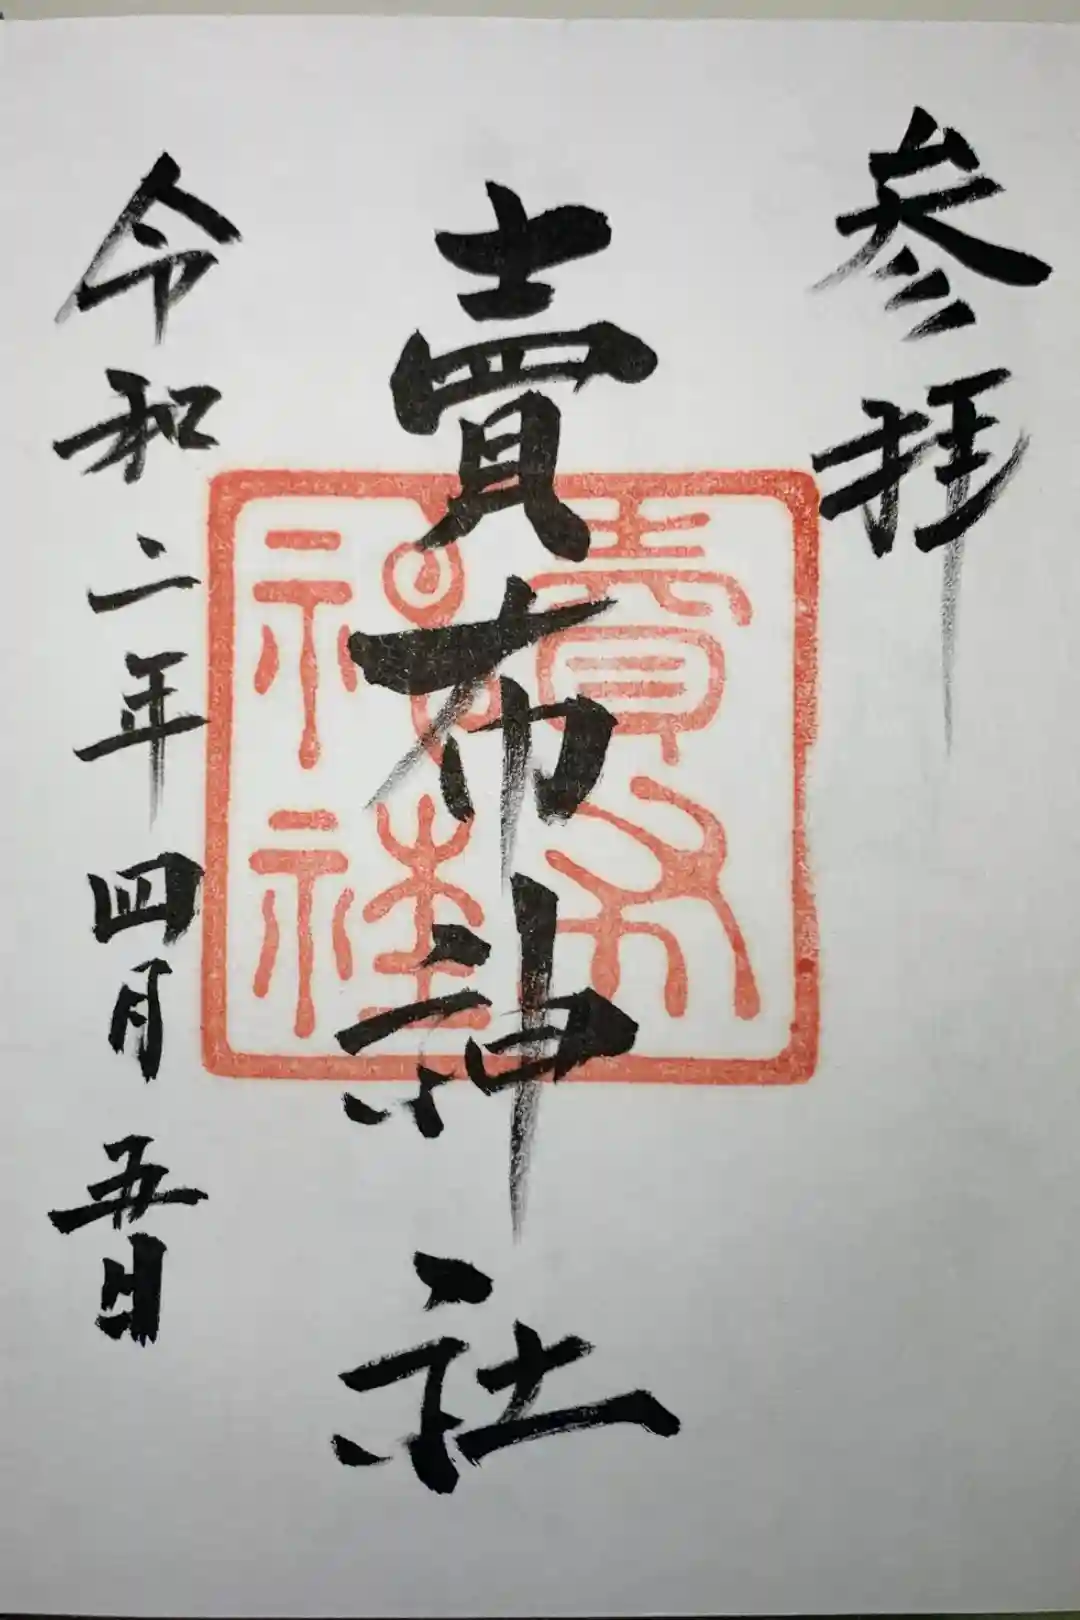 参拝
賣布神社
賣布
神社
令和二年四月五日